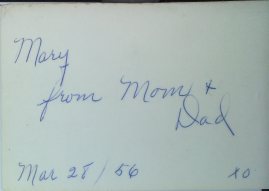 Mary
from Mom +
Dad
Mar 28/56 xo